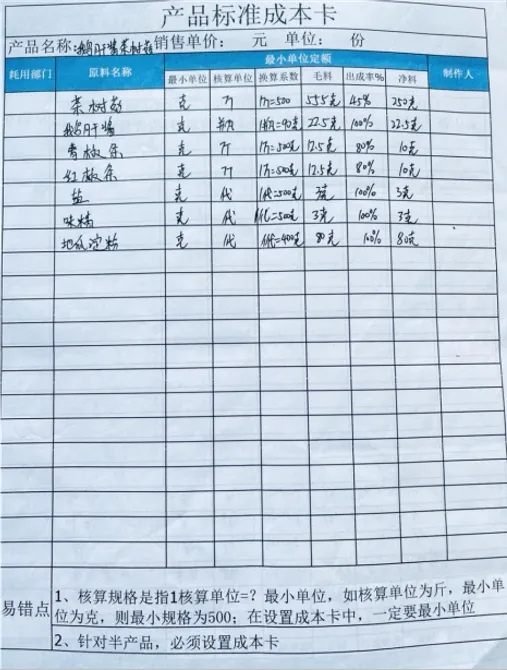 产品标准成本卡
产品名称:鹅肝酱茶树菇 销售单价: 元 单位: 份
耗用部门 原料名称 最小单位定额 制作人
最小单位 核算单位 换算系数 毛料 出成率% 净料
茶树菇 克 斤 1斤=500 555克 45% 250克
鹅肝酱 克 瓶 1瓶=90克 22.5克 100% 22.5克
青椒条 克 斤 1斤=500克 12.5克 80% 10克
红椒条 克 斤 1斤=500克 12.5克 80% 10克
盐 克 代 1代=500克 3克 100% 3克
味精 克 代 1代=500克 3克 100% 3克
地瓜淀粉 克 代 1代=400克 80克 100% 80克
易错点
1、核算规格是指1核算单位=?最小单位，如核算单位为斤，最小单
位为克，则最小规格为500；在设置成本卡中，一定要最小单位
2、针对半产品，必须设置成本卡